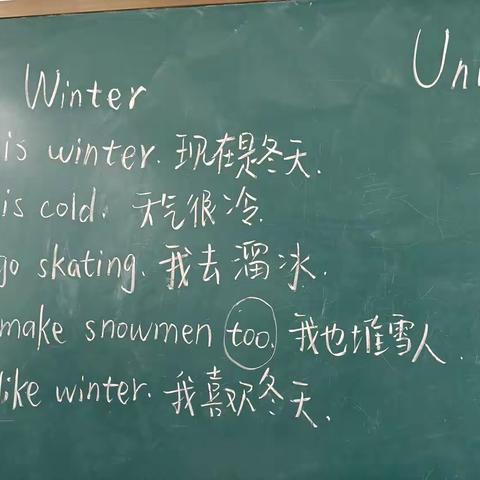 Un
Winter
is winter. 现在是冬天.
is cold. 天气很冷.
go skating. 我去溜冰.
make snowmen too. 我也堆雪人.
like winter. 我喜欢冬天.